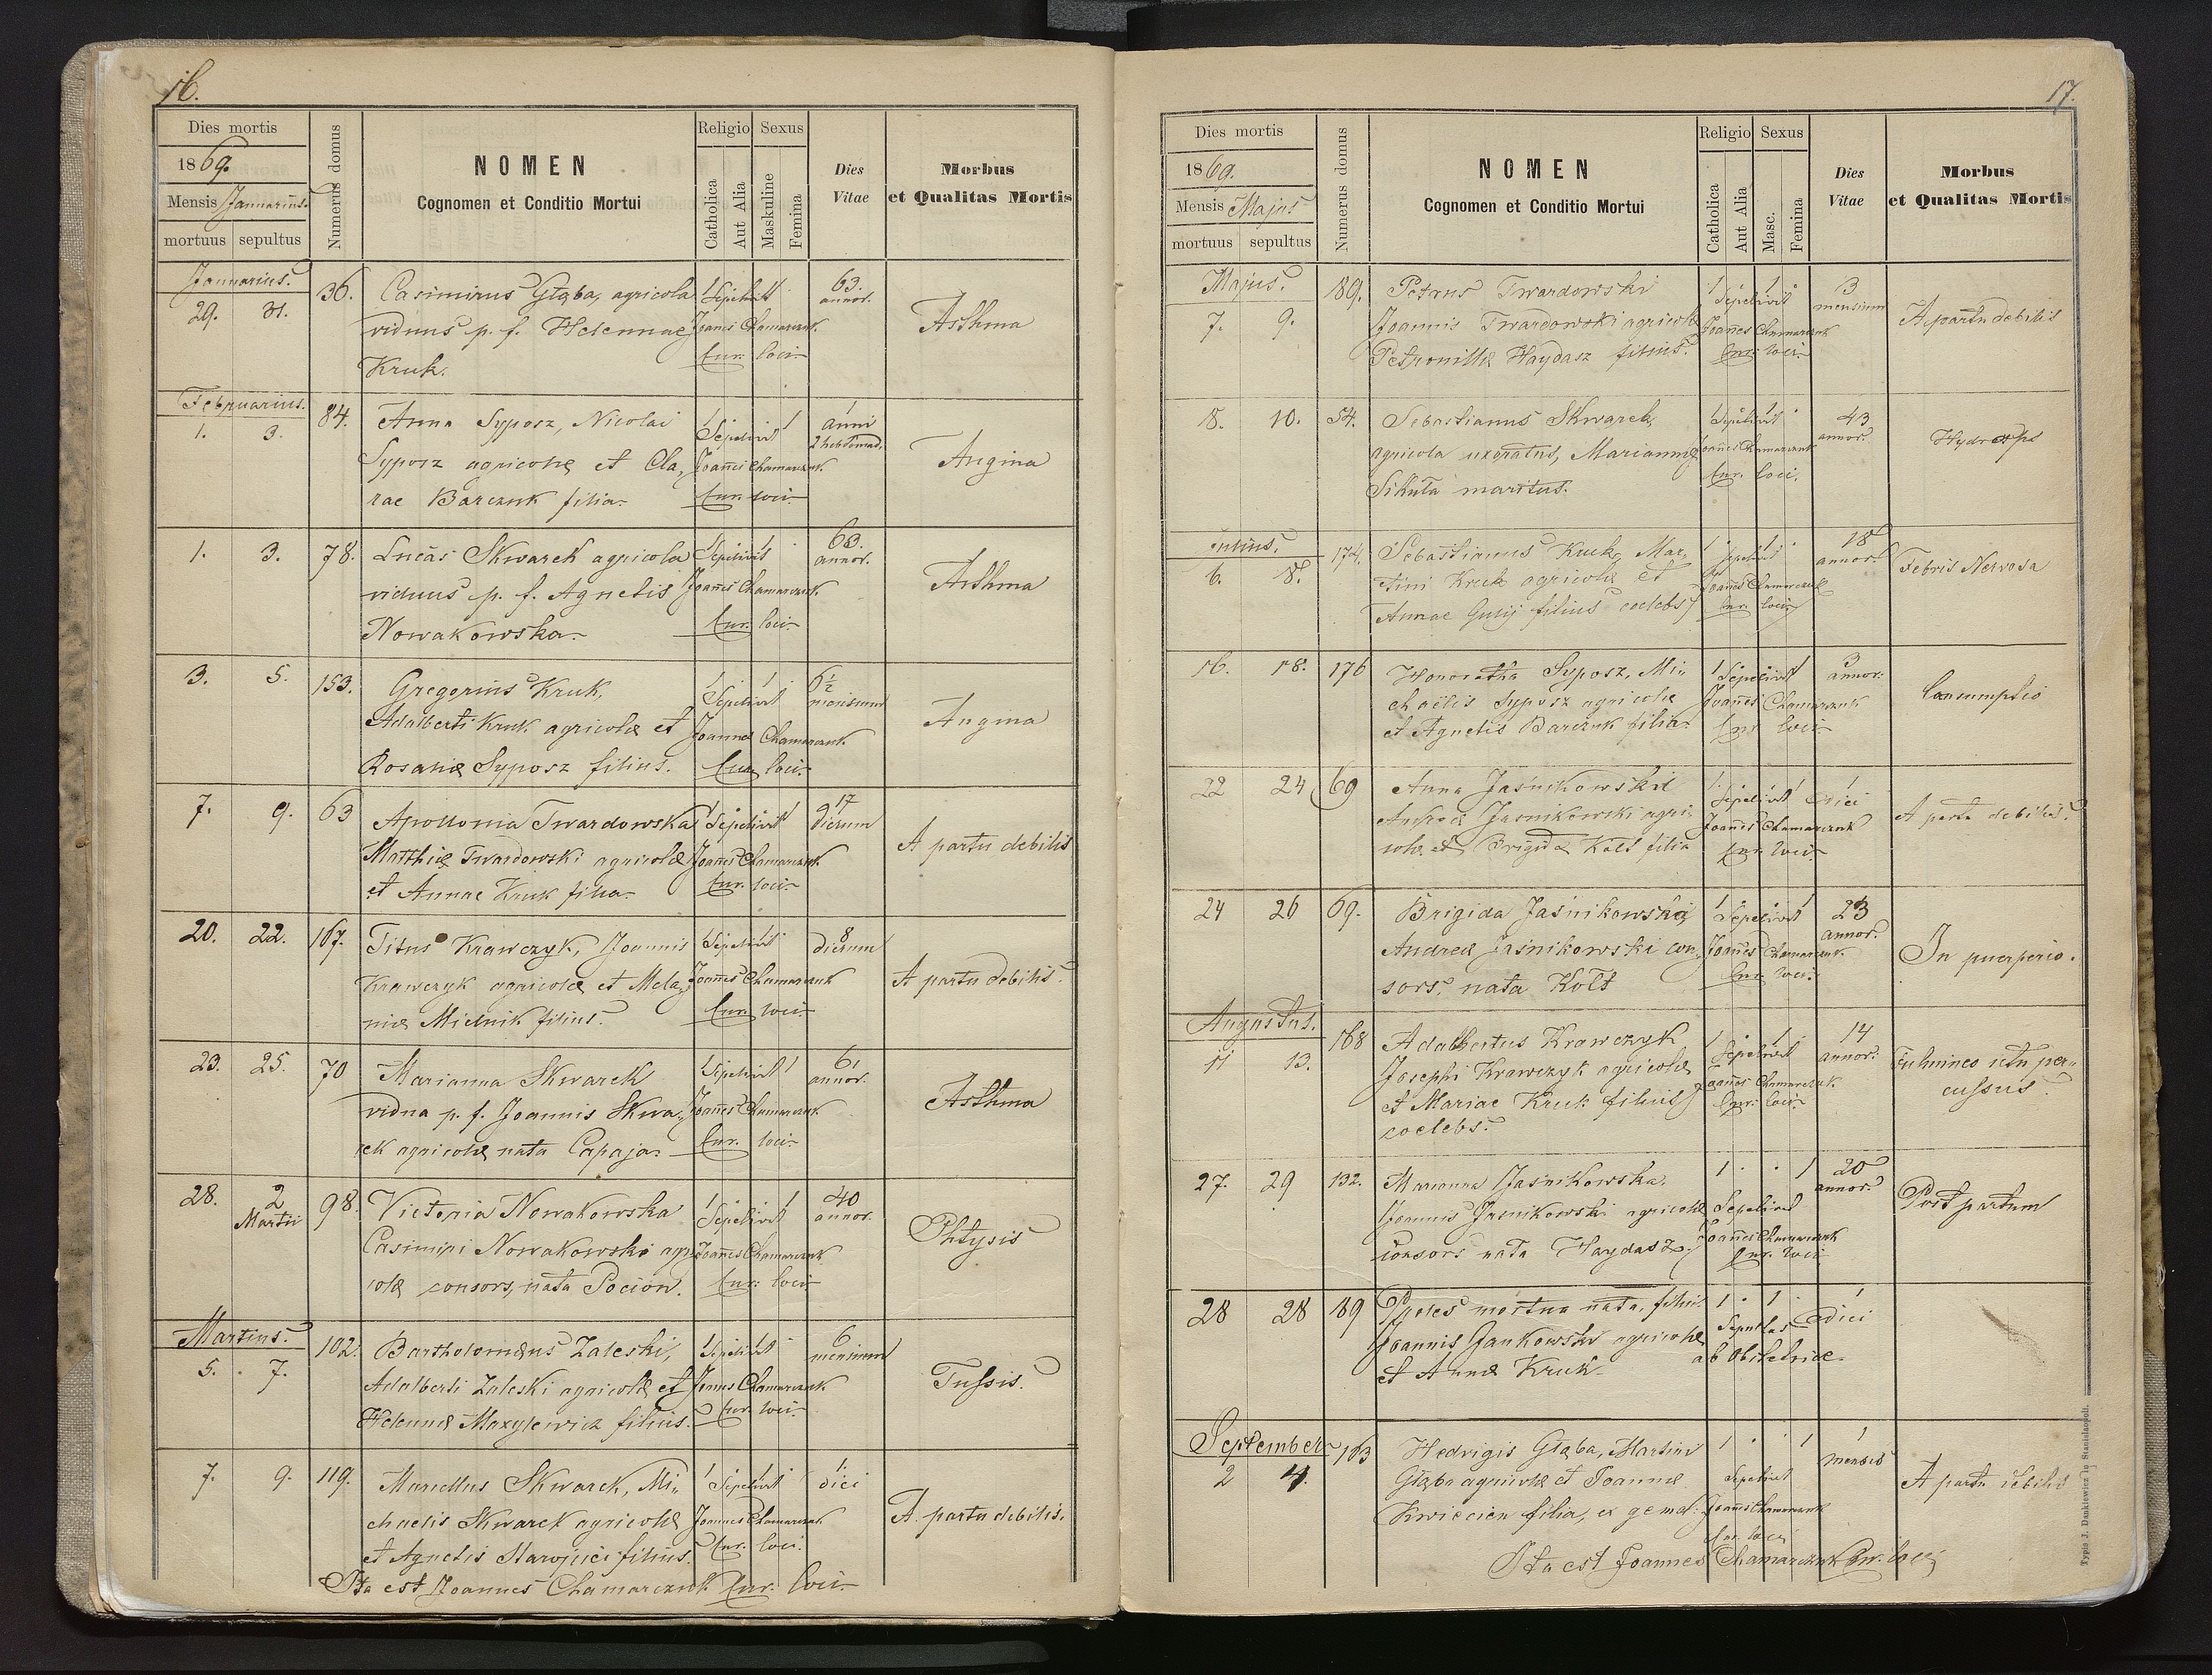 16.
Dies mortis
1869.
Mensis Januarius.
mortuus sepultus
Numerus domus
NOMEN
Cognomen et Conditio Mortui
Religio
Catholica
Aut Alia
Sexus
Maskuline
Femina
Dies
Vitae
Morbus
et Qualitas Mortis
Januarius.
29. 31. 36. Casimirus Głąba, agricola 1 Sepelivit 1 63. annor.
viduus p. f. Helennae Joañes Chamarczuk Asthma
Kruk. Cur. loci
Februarius.
1. 3. 84. Anna Syposz, Nicolai 1 Sepelivit 1 1 anni 2 hebdomad.
Syposz agricolæ et Cla, Joañes Chamarczuk Angina
rae Barczuk filia. Cur. loci
1. 3. 78. Lucas Skwarek agricola 1 Sepelivit 1 63. annor.
viduus p. f. Agnetis Joañes Chamarczuk Asthma
Nowakowska. Cur. loci
3. 5. 153. Gregorius Kruk, 1 Sepelivit 1 6½ mensium
Adalberti Kruk agricolæ et Joannes Chamarczuk Angina
Rosaliæ Syposz filius. Cur. loci
7. 9. 63 Apollonia Twardowska 1 Sepelivit 1 17 dierum
Matthiæ Twardowski agricolæ Joañes Chamarczuk A partu debilis
et Annae Kruk filia. Cur. loci
20. 22. 167. Titus Krawczyk, Joannis 1 Sepelivit 1 8 dierum
Krawczyk agricolæ et Mela, Joañes Chamarczuk A partu debilis.
niæ Mielnik filius. Cur. loci
23. 25. 70 Marianna Skwarek 1 Sepelivit 1 61 annor.
vidua p. f. Joannis Skwa, Joañes Chamarczuk Asthma
rek agricolæ nata Capaja. Cur. loci
28. 2 Martii 98. Victoria Nowakowska 1 Sepelivit 1 40 annor.
Casimiri Nowakowski agri Joañes Chamarczuk Phtysis
colæ consors, nata Pocion. Cur. loci
Martius.
5. 7. 102. Bartholomæus Zaleski, 1 Sepelivit 1 6 mensium
Adalberti Zaleski agricolæ et Joañes Chamarczuk Tussis.
Helennæ Maxylewicz filius. Cur. loci
7. 9. 119. Marcellus Skwarek, Mi, 1 Sepelivit 1 1. diei
chaelis Skwarek agricolæ Joannes Chamarczuk A partu debilis.
et Agnetis filius. Cur. loci.
Ita est Joannes Chamarczuk Cur. loci
17.
Dies mortis
1869.
Mensis Majus
mortuus sepultus
Numerus domus
NOMEN
Cognomen et Conditio Mortui
Religio
Catholica
Aut Alia
Sexus
Masc.
Femina
Dies
Vitae
Morbus
et Qualitas Mortis
Majus.
7. 9. 189. Petrus Twardowski 1 Sepelivit 1 3 mensium
Joannis Twardowski agricolæ Joañes Chamarczuk A partu debilis
Petronillæ Haydasz filius. Cur. loci
8. 10. 54. Sebastianus Skwarek, 1 Sepelivit 1 43 annor.
agricola uxoratus, Mariannæ Joañes Chamarczuk Hydrops
Sikuta maritus. Cur. loci.
Julius.
6. 8. 174. Sebastianus Kruk, Mar, 1 Sepelivit 1 18 annor.
tini Kruk agricolæ et Joañes Chamarczuk Febris Nervosa
Annae Gulij filius coelebs Cur. loci
16. 18. 176 Honoratha Syposz, Mi, 1 Sepelivit 1 3 annor.
chaëlis Syposz agricolæ Joañes Chamarczuk Consumptio
et Agnetis Barczuk filia. Cur. loci
22 24 69 Anna Jaśnikowska 1 Sepelivit 1 1 diei
Andreæ Jasnikowski agri Joañes Chamarczuk A partu debilis.
colæ et Brigidæ Kołt filia Cur. loci
24 26 69. Brigida Jaśnikowska 1 Sepelivit 1 23 annor.
Andreæ Jaśnikowski con, Joañes Chamarczuk In puerperio.
sors. nata Kołt Cur. loci
Augustus.
11 13. 168 Adalbertus Krawczyk 1 Sepelivit 1 14 annor.
Josephi Krawczyk agricolæ Joañes Chamarczuk Fulmineo ictu per,
et Mariae Kruk filius Cur. loci cussus.
coelebs.
27. 29 132. Marianna Jaśnikowska. 1 Sepelivit 1 20 annor.
Joannis Jasnikowski agricolæ Post partum
consors nata Haydasz. Joañes Chamarczuk Cur. loci
28 28 189 Proles mortua nata, filius 1 1 1 diei
Joannis Jankowski agricolæ Sepultus
et Annæ Kruk. ab Obstetrice.
September
2 4. 163 Hedvigis Głąba, Martini 1 1 1 mensis
Głąba agricolæ et Joannæ Sepelivit A partu debilis
Kwiecien filia, ex gemel. Joañes Chamarczuk
Cur. loci
Ita est Joannes Chamarczuk Cur. loci
Typis J. Dankiewicz in Stanislaopoli.